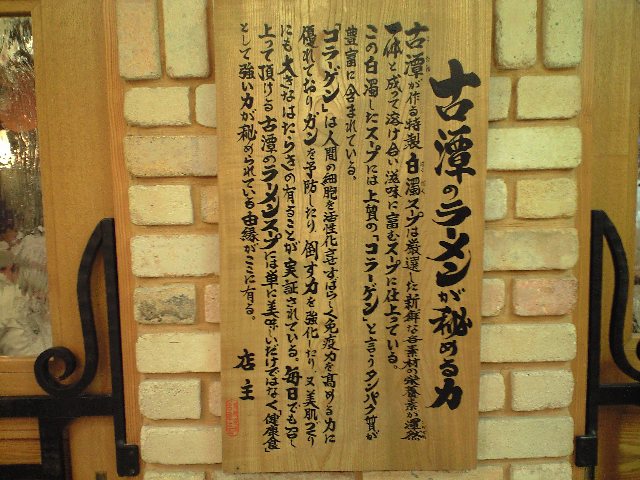 古潭のラーメンが秘める力
古潭が作る特製白濁スープは厳選した新鮮な各素材の栄養素が渾然
一体と成って溶け合い滋味に富むスープに仕上っている。
この白濁したスープには上質の「コラーゲン」と言うタンパク質が
豊富に含まれている。
「コラーゲン」は人間の細胞を活性化させすばらしく免疫力を高める力に
優れておりガンを予防したり、倒す力を強化したり、又美肌づくり
にも大きなはたらきの有ることが実証されている。毎日でも召し
上って頂ける古潭のラーメンスープには単に美味しいだけではなく「健康食」
として強い力が秘められている由縁がここに有る。
店主